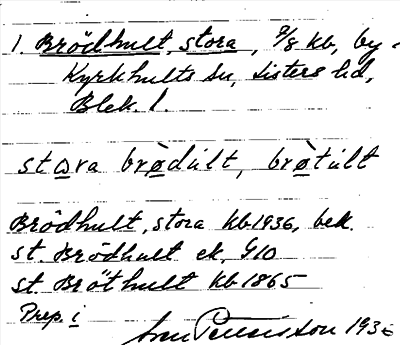 1. Brödhult, stora, 9/8 kb, by
Kyrkhults sn, Listers hd,
Blek. l.
stora brødu̇lt, brøtu̇lt
Brödhult, stora kb 1936, bek.
st. Brödhult ek. G10
st. Bröthult kb 1865
Prep. i
1936